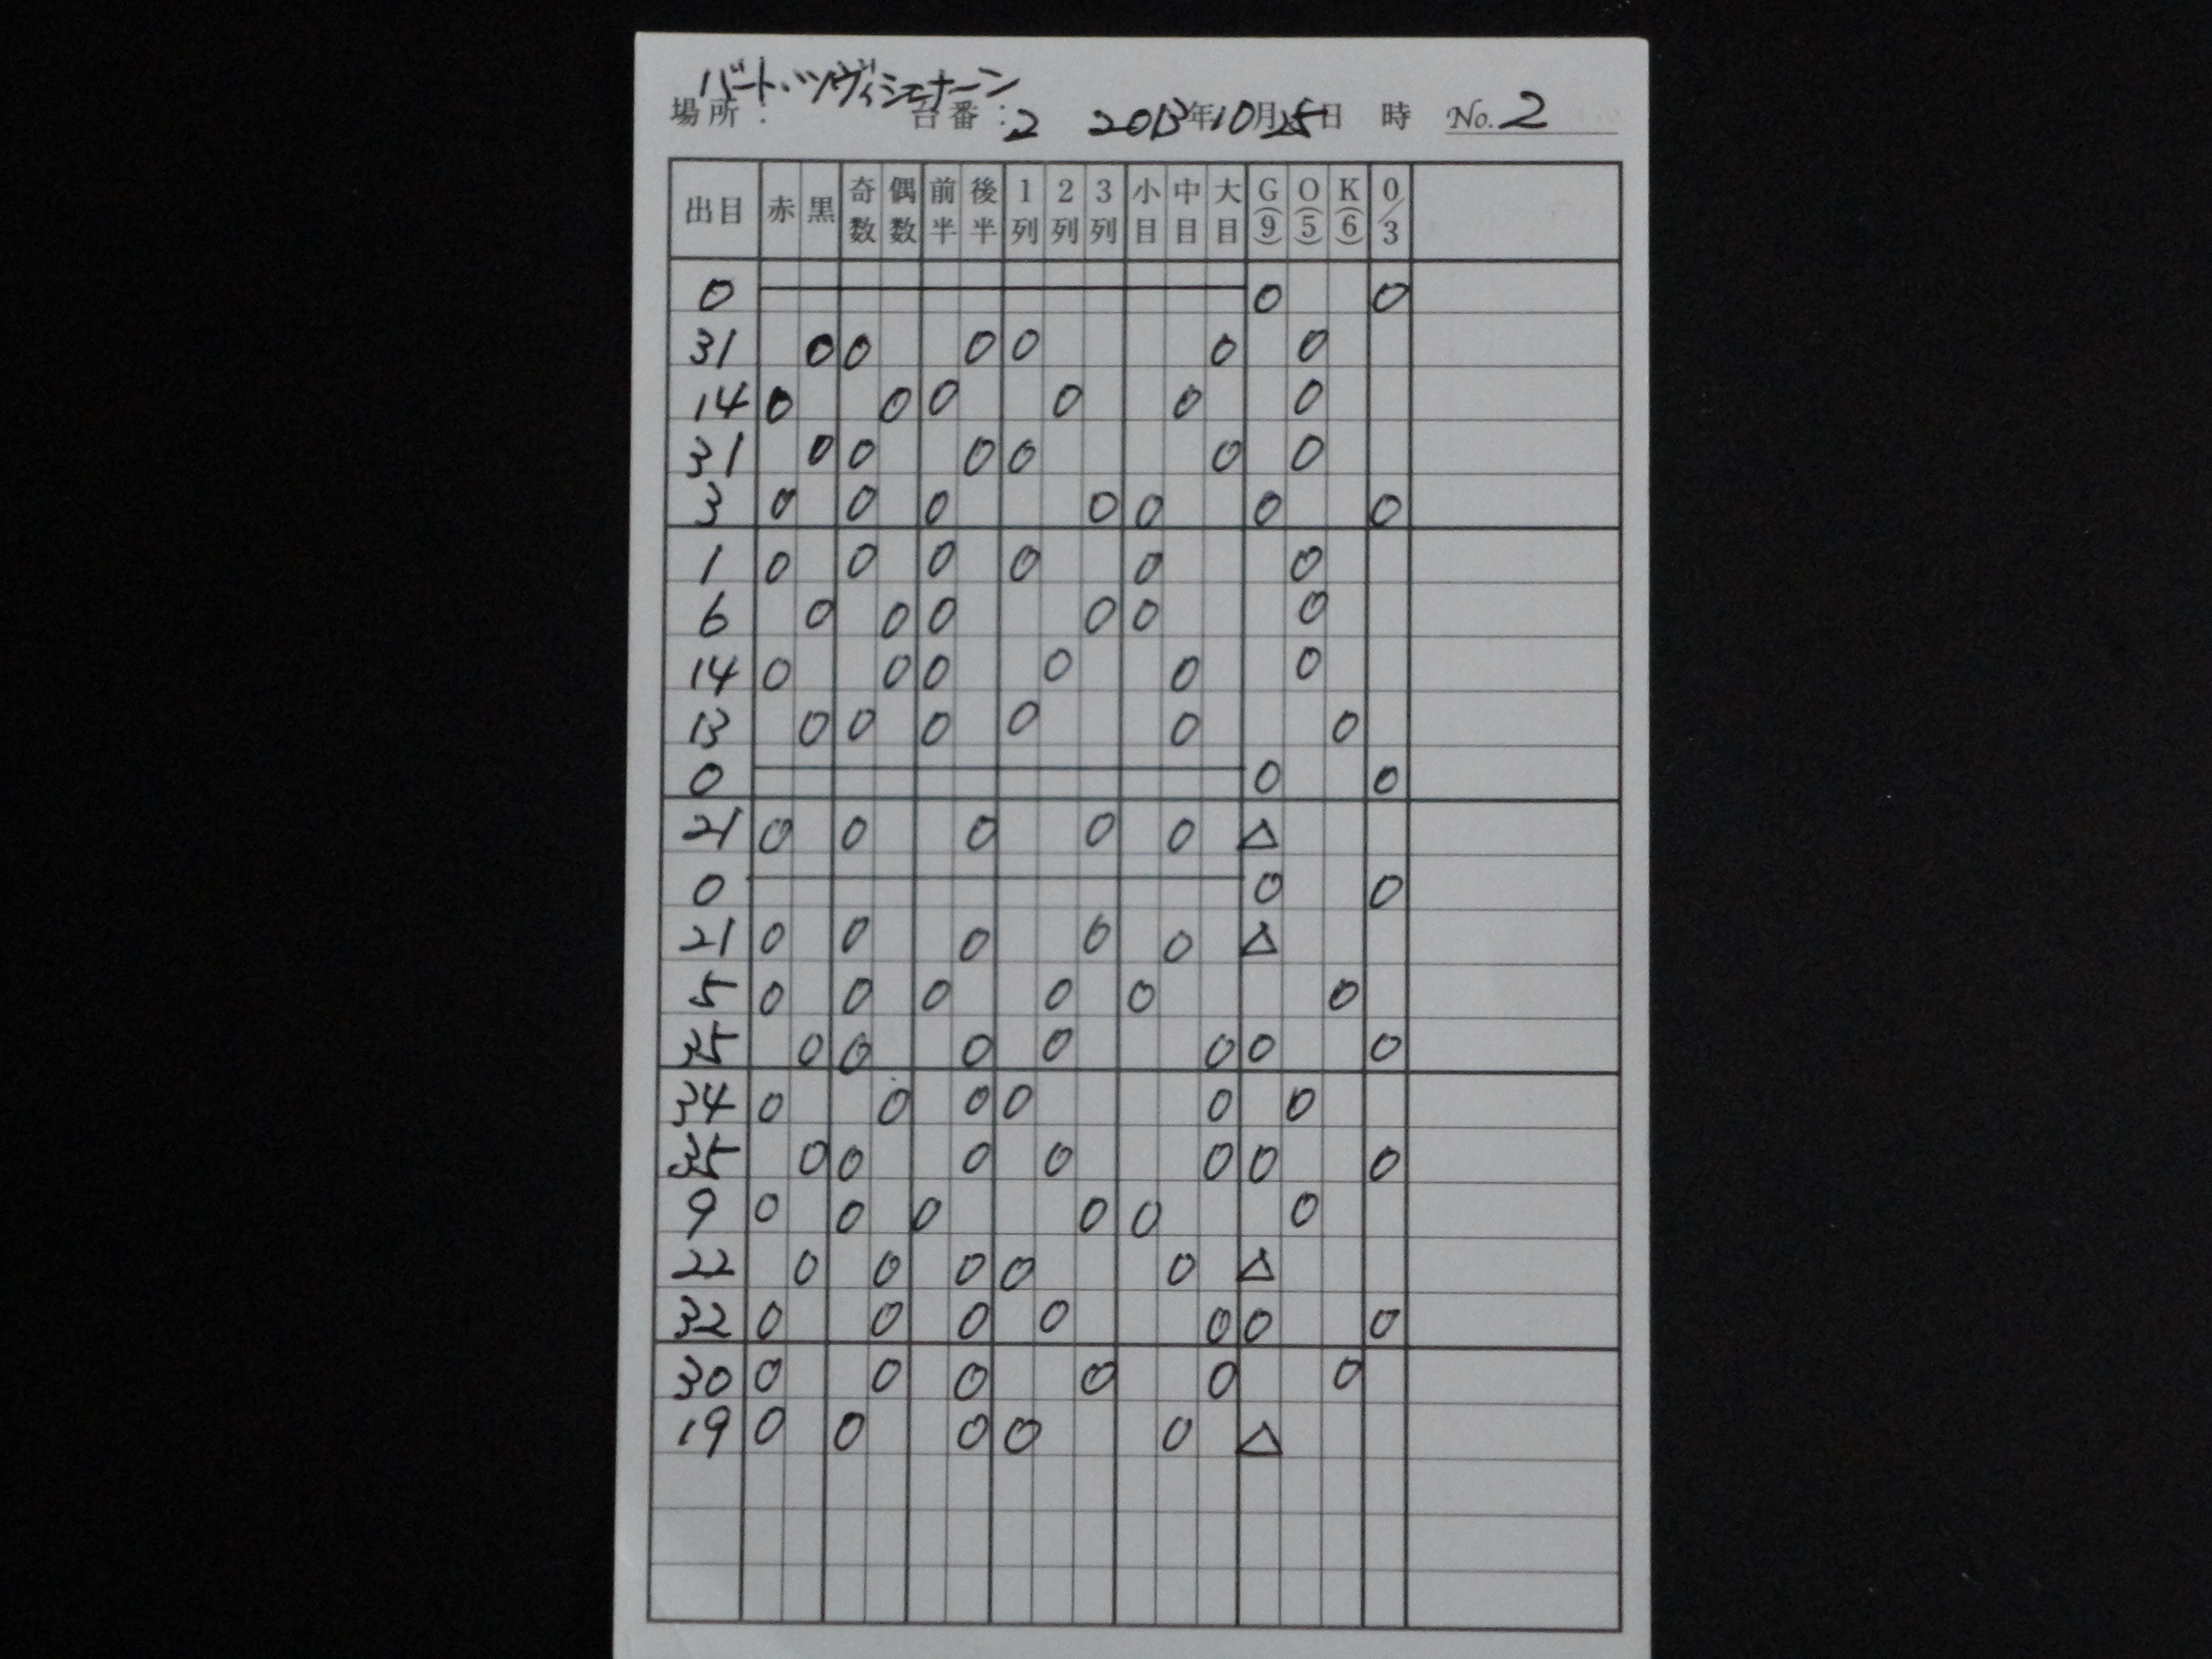 バート・ツヴィシェナーン
場所： 台番：2 2013年10月25日 時 No. 2
出目 赤 黒 奇数 偶数 前半 後半 1列 2列 3列 小目 中目 大目 G(9) O(5) K(6) 0/3
0 0 0
31 0 0 0 0 0 0
14 0 0 0 0 0 0
31 0 0 0 0 0 0
3 0 0 0 0 0 0 0
1 0 0 0 0 0 0
6 0 0 0 0 0 0
14 0 0 0 0 0 0
13 0 0 0 0 0 0
0 0 0
21 0 0 0 0 0 △
0 0 0
21 0 0 0 0 0 △
5 0 0 0 0 0 0
35 0 0 0 0 0 0 0
34 0 0 0 0 0 0
35 0 0 0 0 0 0 0
9 0 0 0 0 0 0
22 0 0 0 0 0 △
32 0 0 0 0 0 0 0
30 0 0 0 0 0 0
19 0 0 0 0 0 △